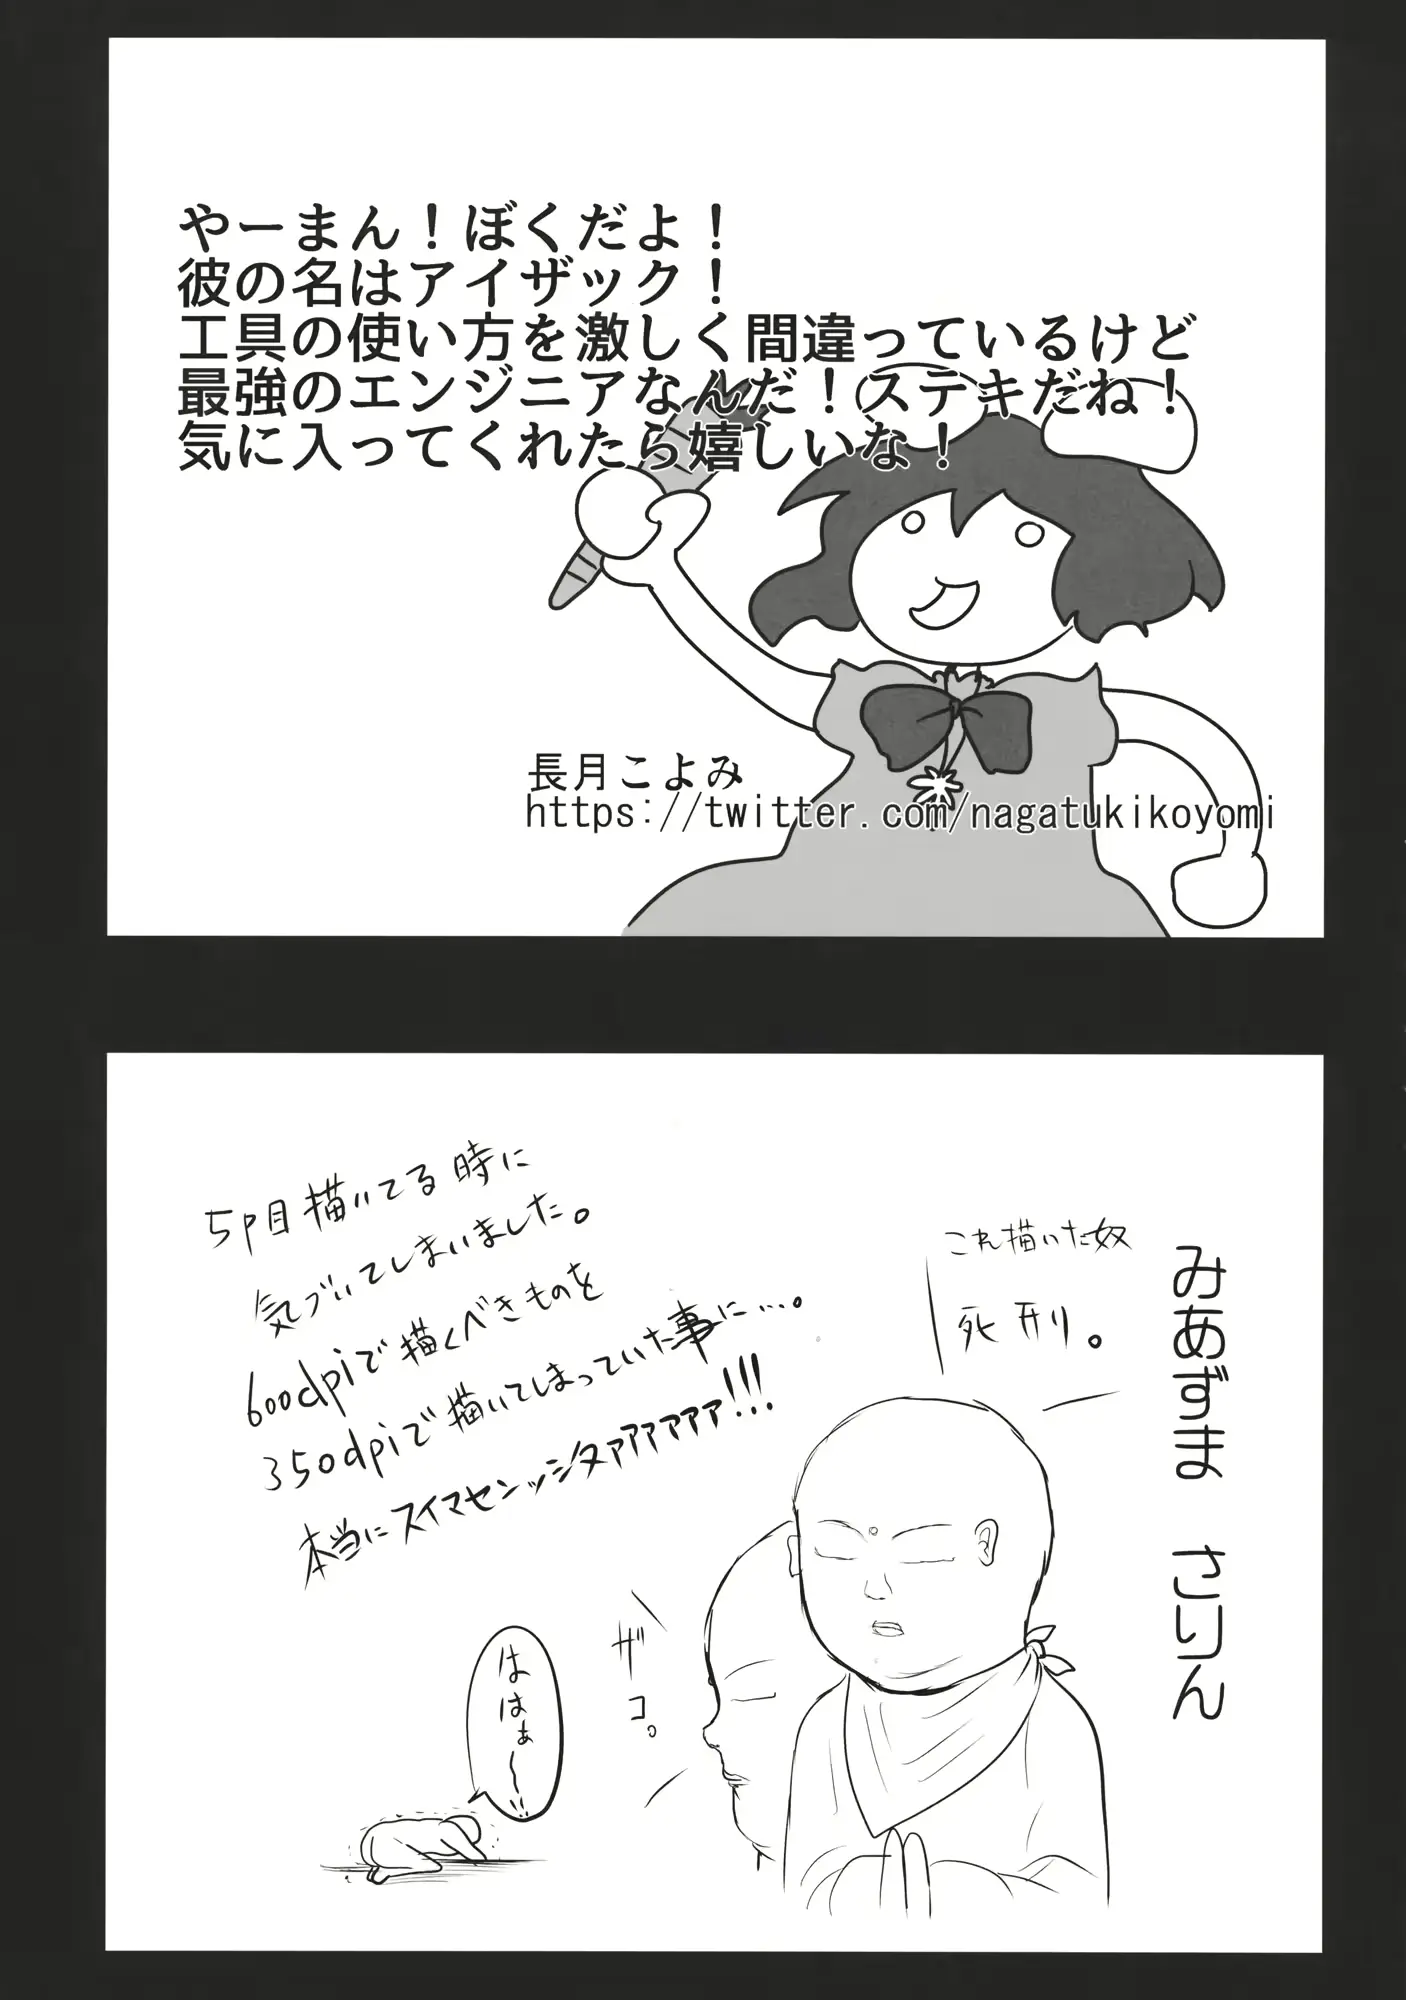 やーまん！ぼくだよ！
彼の名はアイザック！
工具の使い方を激しく間違っているけど
最強のエンジニアなんだ！ステキだね！
気に入ってくれたら嬉しいな！
長月こよみ
https://twitter.com/nagatukikoyomi
みあずま さりん
これ描いた奴
死刑。
5p目描いてる時に
気づいてしまいました。
600dpiで描くべきものを
350dpiで描いてしまっていた事に…。
本当にスイマセンッシタァァァァァァ!!!
ザコ。
ははぁ～!!